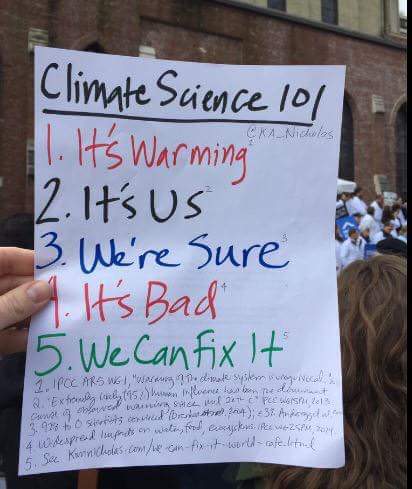 Climate Science 101
@KA_Nicholas
1. It's Warming 1
2. It's Us 2
3. We're Sure 3
4. It's Bad 4
5. We Can fix It 5
1. IPCC AR5 WG1, "Warming of the climate system is unequivocal."
2. "Extremely likely (95%) human influence has been the dominant
cause of observed warming since mid 20th C" IPCC WG1SPM, 2013
3. 928 to 0 scientists convinced
4. Widespread impacts on water, food, ecosystems. IPCC WG2SPM, 2014
5. See Kimnicholas.com/we-can-fix-it-world-cafe.html